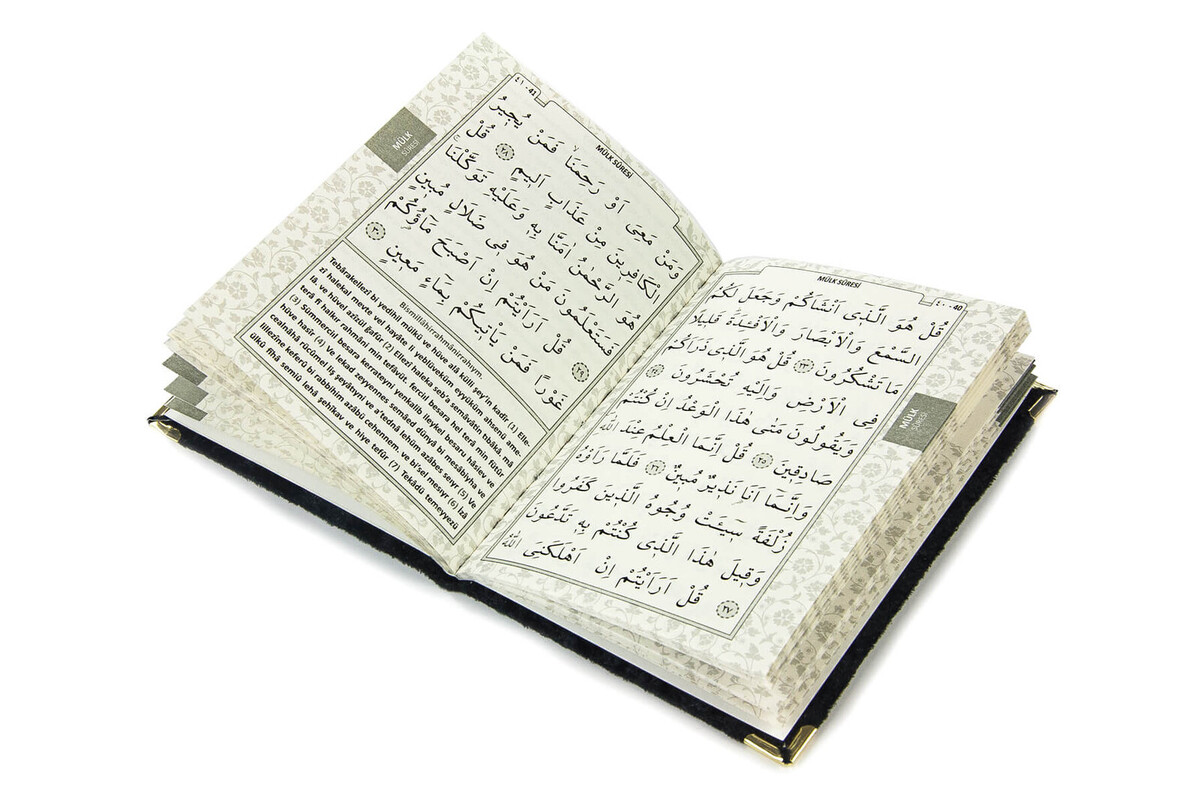 MÜLK SÛRESİ
٤٠ - 40
قُلْ هُوَ الَّذٖٓى اَنْشَاَكُمْ وَجَعَلَ لَكُمُ
السَّمْعَ وَالْاَبْصَارَ وَالْاَفْئِدَةَ قَلٖيلًا
مَا تَشْكُرُونَ ﴿٢٣﴾ قُلْ هُوَ الَّذٖى ذَرَاَكُمْ
فِى الْاَرْضِ وَاِلَيْهِ تُحْشَرُونَ ﴿٢٤﴾
وَيَقُولُونَ مَتٰى هٰذَا الْوَعْدُ اِنْ كُنْتُمْ
صَادِقٖينَ ﴿٢٥﴾ قُلْ اِنَّمَا الْعِلْمُ عِنْدَ اللّٰهِ
وَاِنَّمَٓا اَنَا نَذٖيرٌ مُبٖينٌ ﴿٢٦﴾ فَلَمَّا رَاَوْهُ
زُلْفَةً سٖٓيـَٔتْ وُجُوهُ الَّذٖينَ كَفَرُوا
وَقٖيلَ هٰذَا الَّذٖى كُنْتُمْ بِهٖ تَدَّعُونَ
﴿٢٧﴾ قُلْ اَرَاَيْتُمْ اِنْ اَهْلَكَنِىَ اللّٰهُ
MÜLK
SÛRESİ
MÜLK SÛRESİ
٤١ - 41
وَمَنْ مَعِىَ اَوْ رَحِمَنَا فَمَنْ يُجٖيرُ
الْكَافِرٖينَ مِنْ عَذَابٍ اَلٖيمٍ ﴿٢٨﴾ قُلْ
هُوَ الرَّحْمٰنُ اٰمَنَّا بِهٖ وَعَلَيْهِ تَوَكَّلْنَا
فَسَتَعْلَمُونَ مَنْ هُوَ فٖى ضَلَالٍ مُبٖينٍ
﴿٢٩﴾ قُلْ اَرَاَيْتُمْ اِنْ اَصْبَحَ مَٓاؤُ۬كُمْ
غَوْرًا فَمَنْ يَاْتٖيكُمْ بِمَٓاءٍ مَعٖينٍ ﴿٣٠﴾
Bismillâhirrahmânirrahıym.
Tebârakellezî bi yedihil mülkü ve hüve alâ külli şey'in kadîr. (1) Elle-
zî halekal mevte vel hayâte li yeblüveküm eyyüküm ahsenü ame-
lâ. ve hüvel azîzül ğafûr (2) Ellezî haleka seb'a semâvâtin tıbâkâ. mâ
terâ fî halkır rahmâni min tefâvüt. ferciıl besara hel terâ min fütûr
(3) Sümmerciıl besara kerrateyni yenkalib ileykel besaru hâsiev ve
hüve hasîr (4) Ve lekad zeyyennes semâed dünyâ bi mesâbîyha ve
cealnâhâ rücûmel liş şeyâtyni ve a'tednâ lehüm azâbes seıyr (5) Ve
lillezîne keferû bi rabbihim azâbü cehennem. ve bi'sel mesıyr (6) İzâ
ülkû fîhâ semiû lehâ şehîkav ve hiye tefûr (7) Tekâdü temeyyezü
MÜLK
SÛRESİ